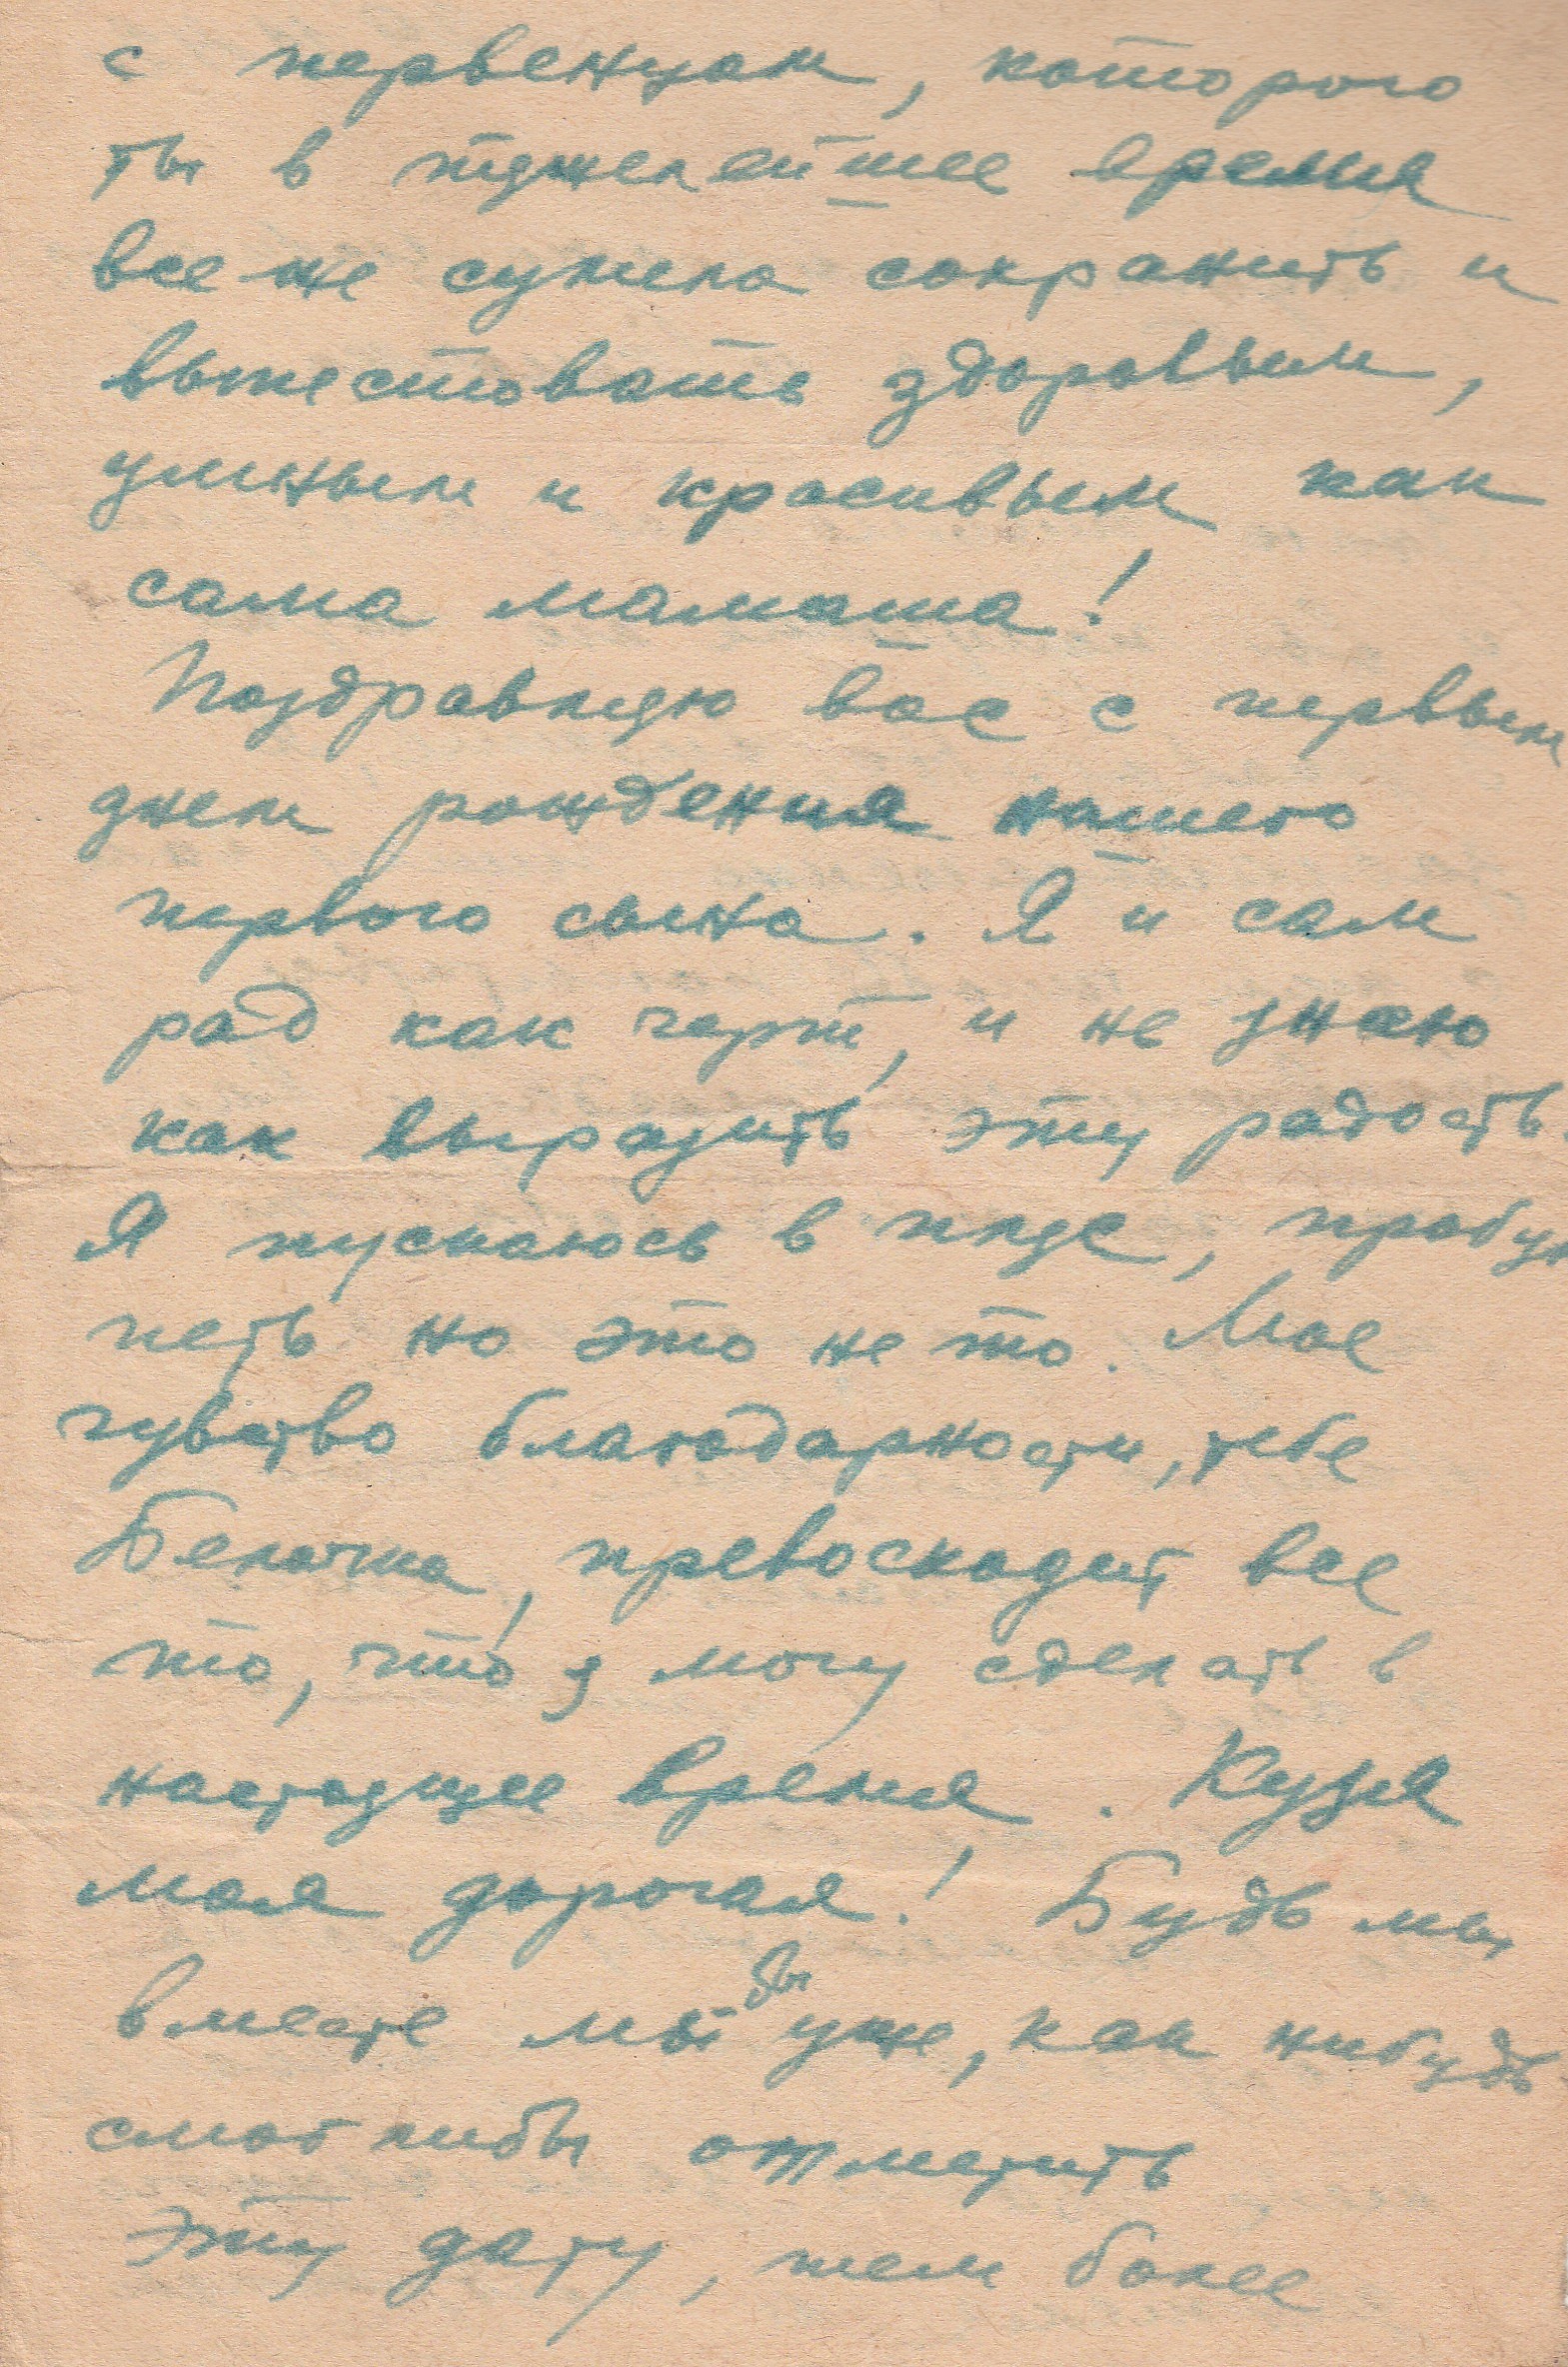 с первенцом, которого
ты в тяжелейшее время
все же сумела сохранить и
выпестовать здоровым,
умным и красивым как
сама мамаша!
Поздравляю вас с первым
днем рождения нашего
первого сына. Я и сам
рад как черт, и не знаю
как выразить эту радость.
Я пускаюсь в пляс, пробую
петь но это не то. Мое
чувство благодарности, тебе
Белочка, превосходит все
то, что я могу сделать в
настоящее время. Кузя
моя дорогая! Будь мы
вместе мы бы уже, как нибудь
смогли бы отметить
эту дату, тем более